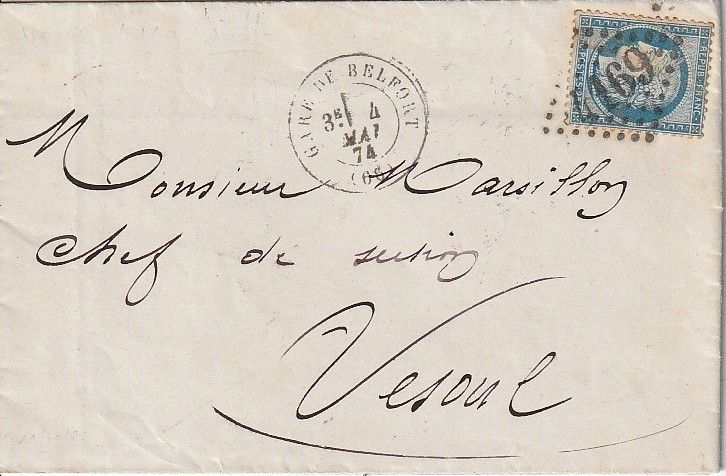 GARE DE BELFORT
3E 4
MAI
74
(66)
REPUB. FRANC.
POSTES
Monsieur Marsillon
chef de section
Vesoul